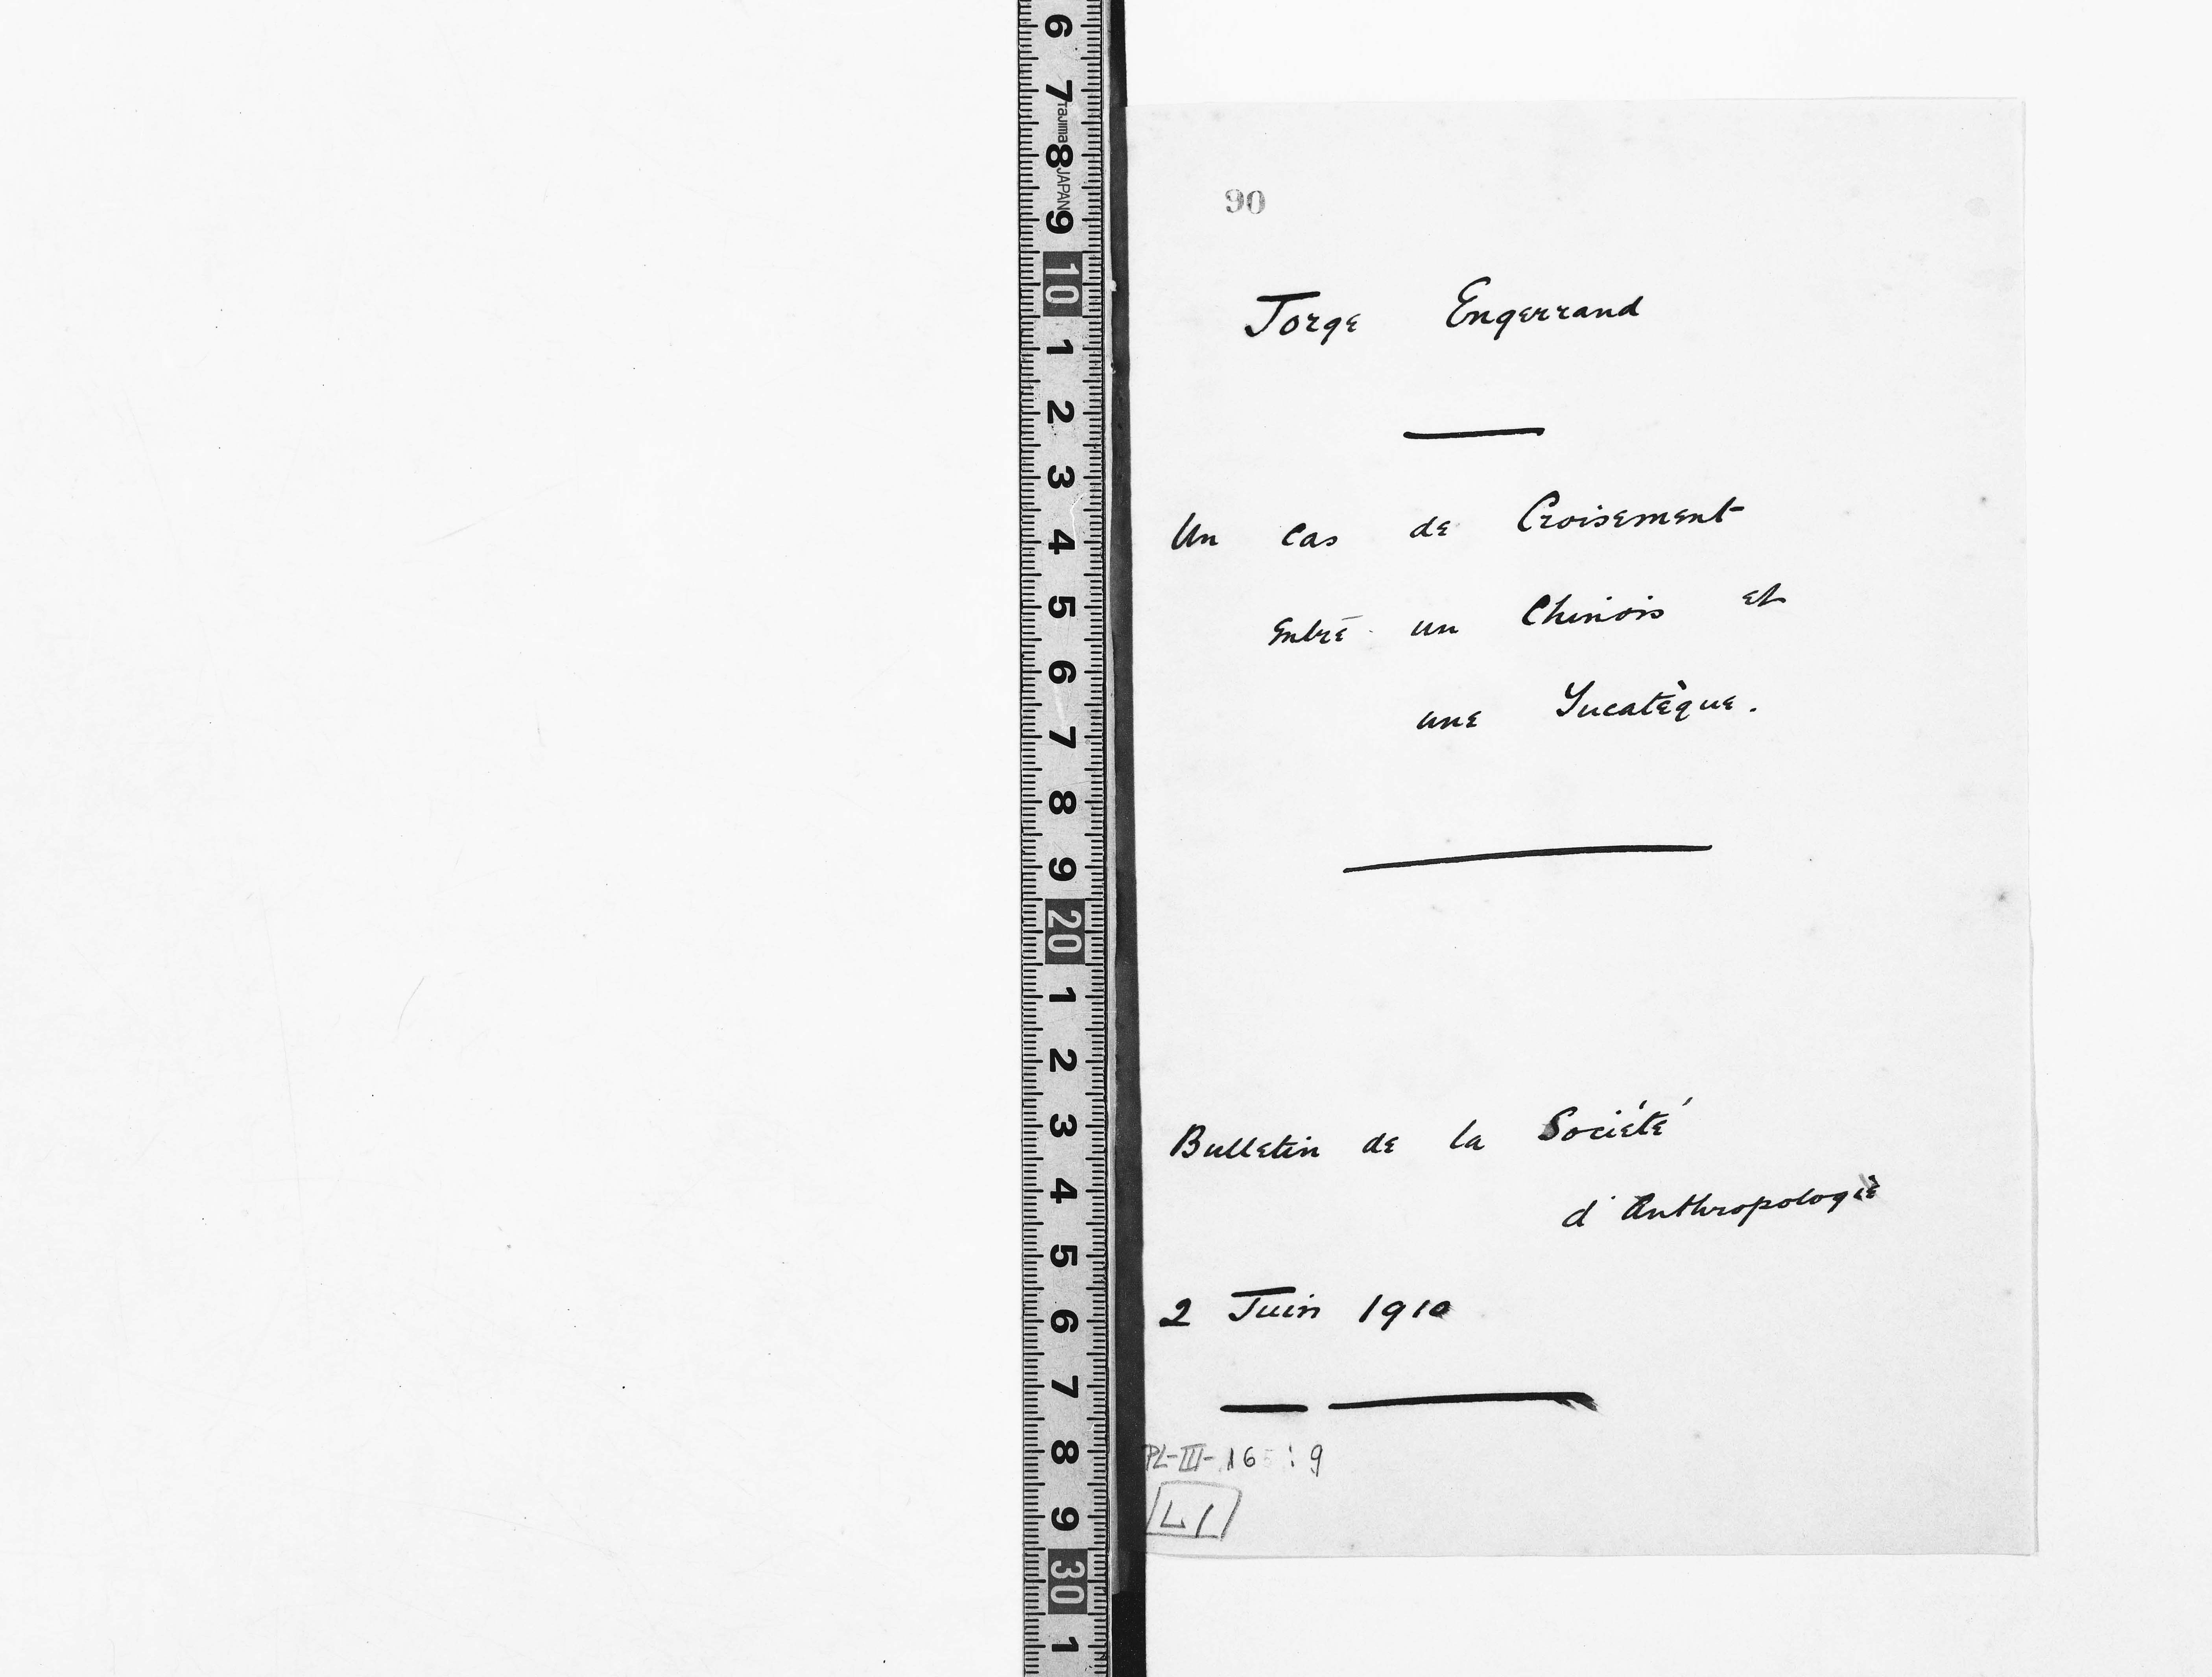 6
7
Tajima
8
JAPAN
9
10
1
2
3
4
5
6
7
8
9
20
1
2
3
4
5
6
7
8
9
30
1
90
Jorge Engerrand
Un Cas de Croisement
Entre un Chinois et
une Yucatèque.
Bulletin de la Société
d'Anthropologie
2 Juin 1910
PL-III-165:9